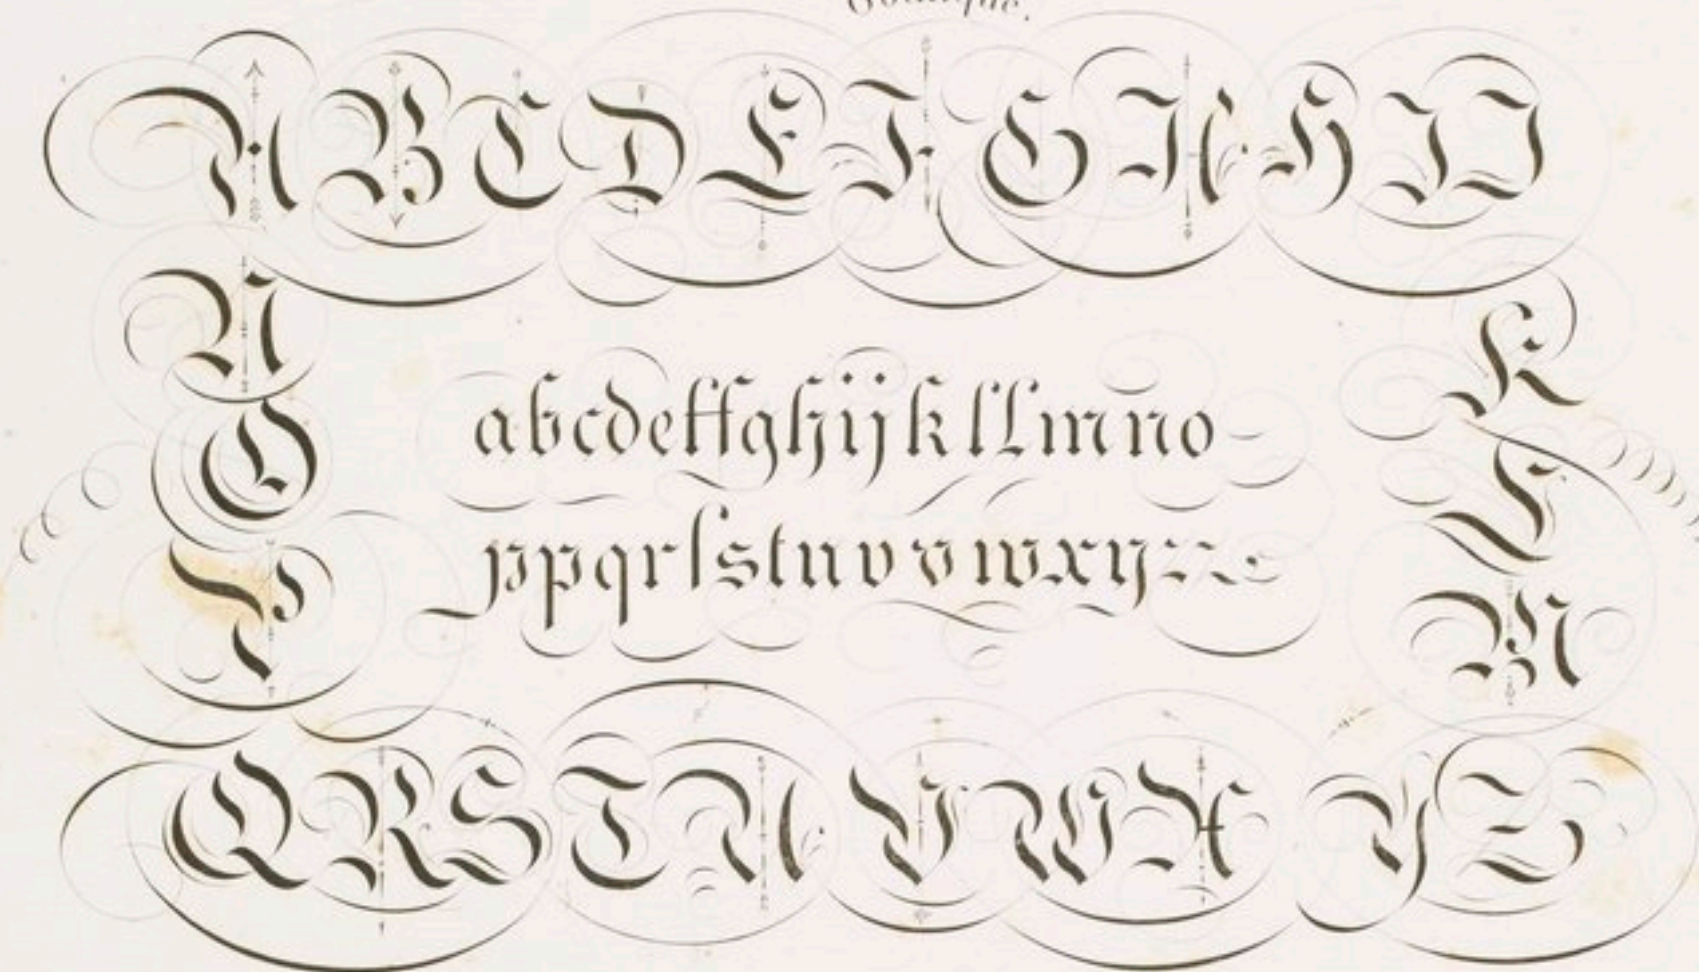 Gothique.
A B C D E F G H H I J
K
L
M
N
O
P
abcdeffghijklllmno
ppqrſstuvvwxyzz
Q R S T U V W X Y Z